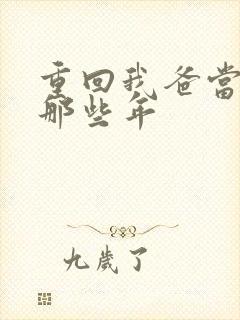 重回我爸当
那些年
九歲了